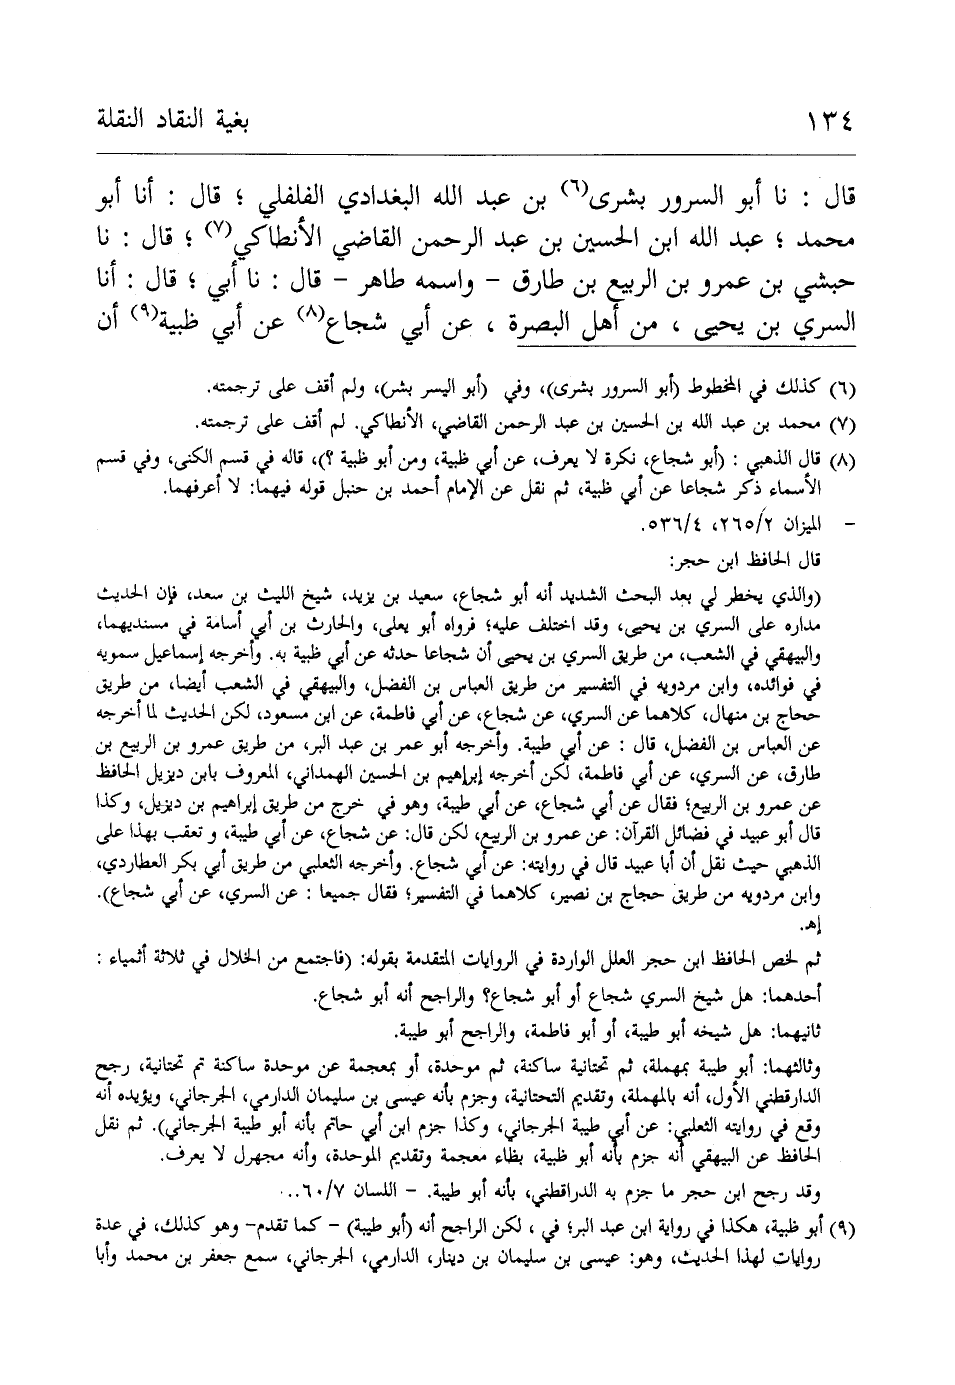 ١٣٤ بغية النقاد النقلة
قال : نا أبو السرور بشرى(٦) بن عبد الله البغدادي الفلفلي ؛ قال : أنا أبو
محمد ؛ عبد الله ابن الحسين بن عبد الرحمن القاضي الأنطاكي(٧) ؛ قال : نا
حبشي بن عمرو بن الربيع بن طارق – واسمه طاهر – قال : نا أبي ؛ قال : أنا
السري بن يحيى ، من أهل البصرة ، عن أبي شجاع(٨) عن أبي ظبية(٩) أن
(٦) كذلك في المخطوط (أبو السرور بشرى)، وفي (أبو اليسر بشر)، ولم أقف على ترجمته.
(٧) محمد بن عبد الله بن الحسين بن عبد الرحمن القاضي، الأنطاكي. لم أقف على ترجمته.
(٨) قال الذهبي : (أبو شجاع، نكرة لا يعرف، عن أبي ظبية، ومن أبو ظبية ؟)، قاله في قسم الكنى، وفي قسم
الأسماء ذكر شجاعا عن أبي ظبية، ثم نقل عن الإمام أحمد بن حنبل قوله فيهما: لا أعرفهما.
– الميزان ٢٦٥/٢، ٥٣٦/٤.
قال الحافظ ابن حجر:
(والذي يخطر لي بعد البحث الشديد أنه أبو شجاع، سعيد بن يزيد، شيخ الليث بن سعد، فإن الحديث
مداره على السري بن يحيى، وقد اختلف عليه؛ فرواه أبو يعلى، والحارث بن أبي أسامة في مسنديهما،
والبيهقي في الشعب، من طريق السري بن يحيى أن شجاعا حدثه عن أبي ظبية به. وأخرجه إسماعيل سمويه
في فوائده، وابن مردويه في التفسير من طريق العباس بن الفضل، والبيهقي في الشعب أيضا، من طريق
حجاج بن منهال، كلاهما عن السري، عن شجاع، عن أبي فاطمة، عن ابن مسعود، لكن الحديث لما أخرجه
عن العباس بن الفضل، قال : عن أبي طيبة. وأخرجه أبو عمر بن عبد البر، من طريق عمرو بن الربيع بن
طارق، عن السري، عن أبي فاطمة، لكن أخرجه إبراهيم بن الحسين الهمداني، المعروف بابن ديزيل الحافظ
عن عمرو بن الربيع؛ فقال عن أبي شجاع، عن أبي طيبة، وهو في خرج من طريق إبراهيم بن ديزيل، وكذا
قال أبو عبيد في فضائل القرآن: عن عمرو بن الربيع، لكن قال: عن شجاع، عن أبي طيبة، و تعقب بهذا على
الذهبي حيث نقل أن أبا عبيد قال في روايته: عن أبي شجاع. وأخرجه الثعلبي من طريق أبي بكر العطاردي،
وابن مردويه من طريق حجاج بن نصير، كلاهما في التفسير؛ فقال جميعا : عن السري، عن أبي شجاع).
إهـ.
ثم لخص الحافظ ابن حجر العلل الواردة في الروايات المتقدمة بقوله: (فاجتمع من الخلال في ثلاثة أثمياء :
أحدهما: هل شيخ السري شجاع أو أبو شجاع؟ والراجح أنه أبو شجاع.
ثانيهما: هل شيخه أبو طيبة، أو أبو فاطمة، والراجح أبو طيبة.
وثالثهما: أبو طيبة بمهملة، ثم تحتانية ساكنة، ثم موحدة، أو بمعجمة عن موحدة ساكنة تم تحتانية، رجح
الدارقطني الأول، أنه بالمهملة، وتقديم التحتانية، وجزم بأنه عيسى بن سليمان الدارمي، الجرجاني، ويؤيده أنه
وقع في روايته الثعلبي: عن أبي طيبة الجرجاني، وكذا جزم ابن أبي حاتم بأنه أبو طيبة الجرجاني). ثم نقل
الحافظ عن البيهقي أنه جزم بأنه أبو ظبية، بظاء معجمة وتقديم الموحدة، وأنه مجهرل لا يعرف.
وقد رجح ابن حجر ما جزم به الدراقطني، بأنه أبو طيبة. – اللسان ٦٠/٧...
(٩) أبو ظبية، هكذا في رواية ابن عبد البر؛ في ، لكن الراجح أنه (أبو طيبة) – كما تقدم– وهو كذلك، في عدة
روايات لهذا الحديث، وهو: عيسى بن سليمان بن دينار، الدارمي، الجرجاني، سمع جعفر بن محمد وأبا